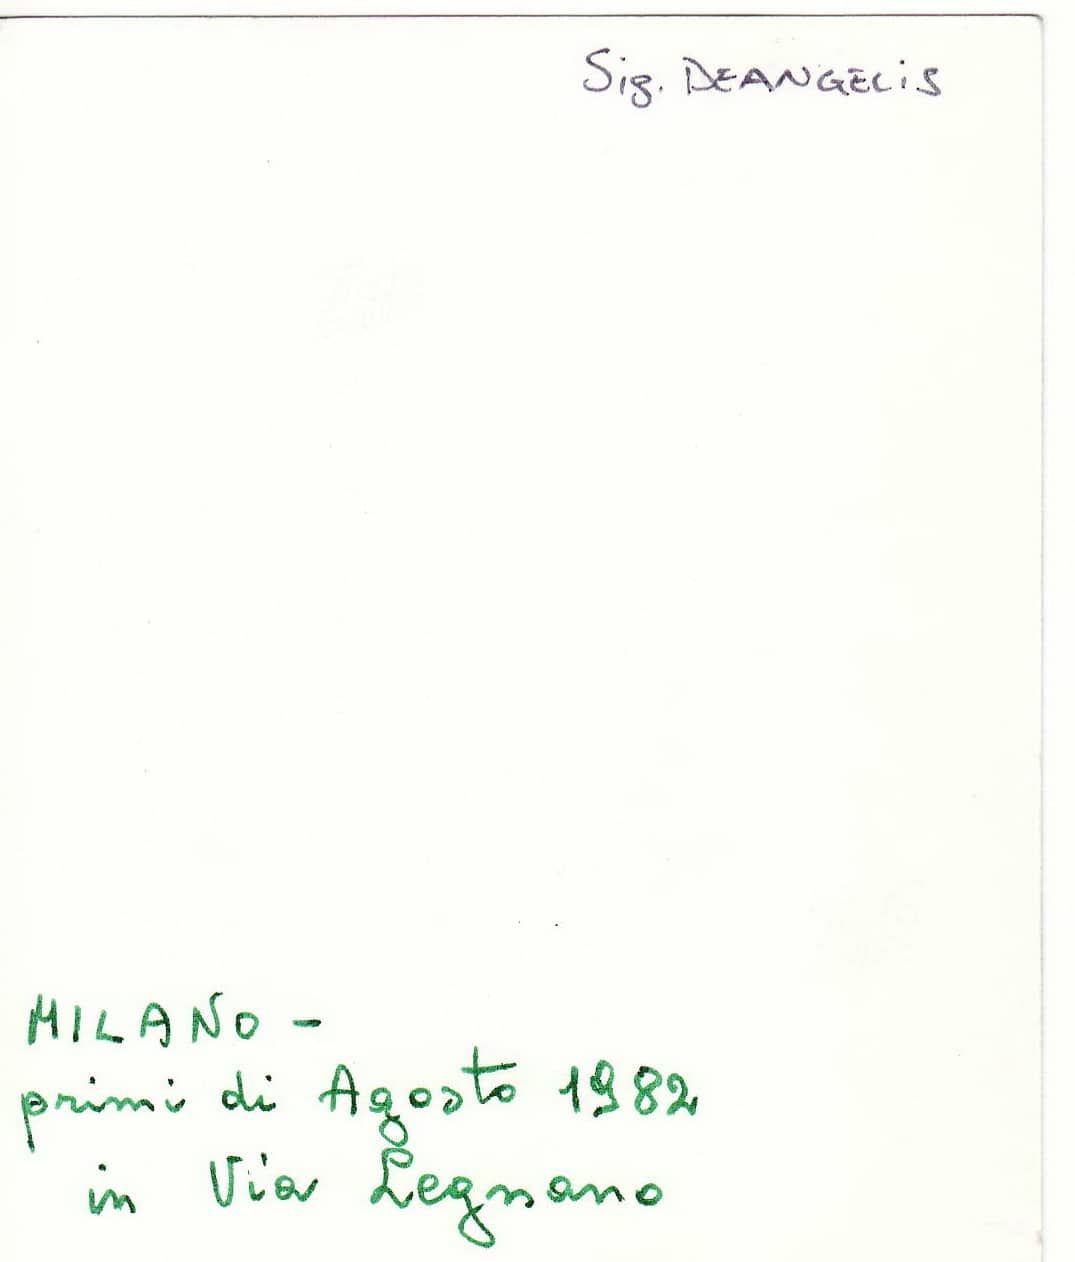 Sig. DEANGELIS
MILANO -
primi di Agosto 1982
in Via Legnano